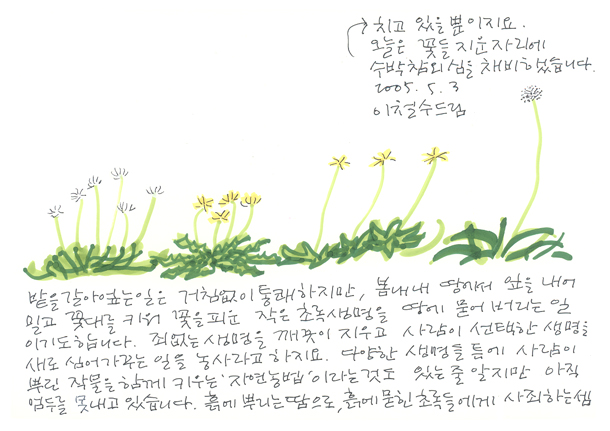 밭을 갈아엎는 일은 거침없이 통쾌하지만, 봄내내 땅에서 잎을 내어
밀고 꽃대를 키워 꽃을 피운 작은 초록생명을 땅에 묻어 버리는 일
이기도 합니다. 죄없는 생명을 깨끗이 지우고 사람이 선택한 생명을
새로 심어가꾸는 일을 농사라고 하지요. 다양한 생명들 틈에 사람이
뿌린 작물을 함께 키우는 '자연농법'이라는 것도 있는 줄 알지만 아직
엄두를 못내고 있습니다. 흙에 뿌리는 땀으로, 흙에 묻힌 초록들에게 사죄하는 셈
치고 있을 뿐이지요.
오늘은 꽃들 지운 자리에
수박 참외 심을 채비 했습니다.
2005. 5. 3
이철수 드림